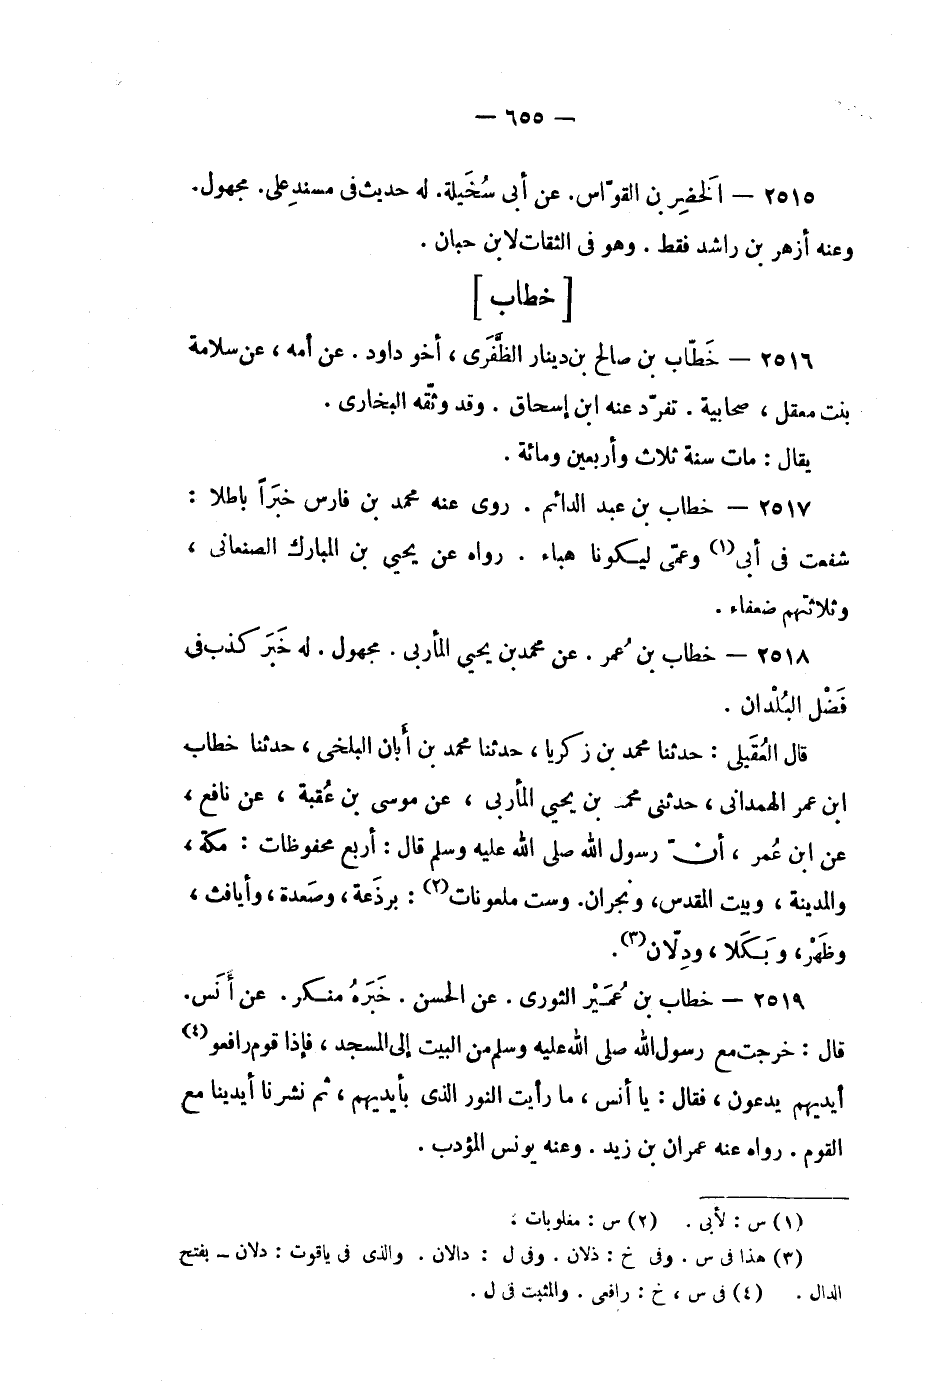 — ٦٥٥ —
٢٥١٥ — الخَضِر بن القوّاس. عن أبى سُخَيلة. له حديث فى مسند على. مجهول.
وعنه أزهر بن راشد فقط. وهو فى الثقات لابن حبان.
[خطاب]
٢٥١٦ — خَطّاب بن صالح بن دينار الظَّفَرى، أخو داود. عن أمه، عن سلامة
بنت معقل، صحابية. تفرّد عنه ابن إسحاق. وقد وثّقه البخارى.
يقال: مات سنة ثلاث وأربعين ومائة.
٢٥١٧ — خطاب بن عبد الدائم. روى عنه محمد بن فارس خبَراً باطلا:
شفعت فى أبى(١) وعمّى ليكونا هباء. رواه عن يحيي بن المبارك الصنعانى،
وثلاثتهم ضعفاء.
٢٥١٨ — خطاب بن عُمر. عن محمد بن يحيي المأربى. مجهول. له خَبَر كذب فى
فَضْل البُلْدان.
قال العُقَيلى: حدثنا محمد بن زكريا، حدثنا محمد بن أَبان البلخى، حدثنا خطاب
ابن عمر الهمدانى، حدثنى محمد بن يحيي المأربى، عن موسى بن عُقبة، عن نافع،
عن ابن عُمر، أن رسول الله صلى الله عليه وسلم قال: أربع محفوظات: مكة،
والمدينة، وبيت المقدس، ونجران. وست ملعونات(٢): برذَعة، وصَعدة، وأيافث،
وظَهْر، وبَكَلا، ودِلّان(٣).
٢٥١٩ — خطاب بن عُمَيْر الثورى. عن الحسن. خَبَرَهُ منكر. عن أَنَس.
قال: خرجت مع رسول الله صلى الله عليه وسلم من البيت إلى المسجد، فإذا قوم رافعو(٤)
أيديهم يدعون، فقال: يا أنس، ما رأيت النور الذى بأيديهم، ثم نشرنا أيدينا مع
القوم. رواه عنه عمران بن زيد. وعنه يونس المؤدب.
(١) س: لأبى. (٢) س: مغلوبات.
(٣) هذا فى س. وفى خ: ذلان. وفى ل: دالان. والذى فى ياقوت: دلان — بفتح
الدال. (٤) فى س، خ: رافعى. والمثبت فى ل.